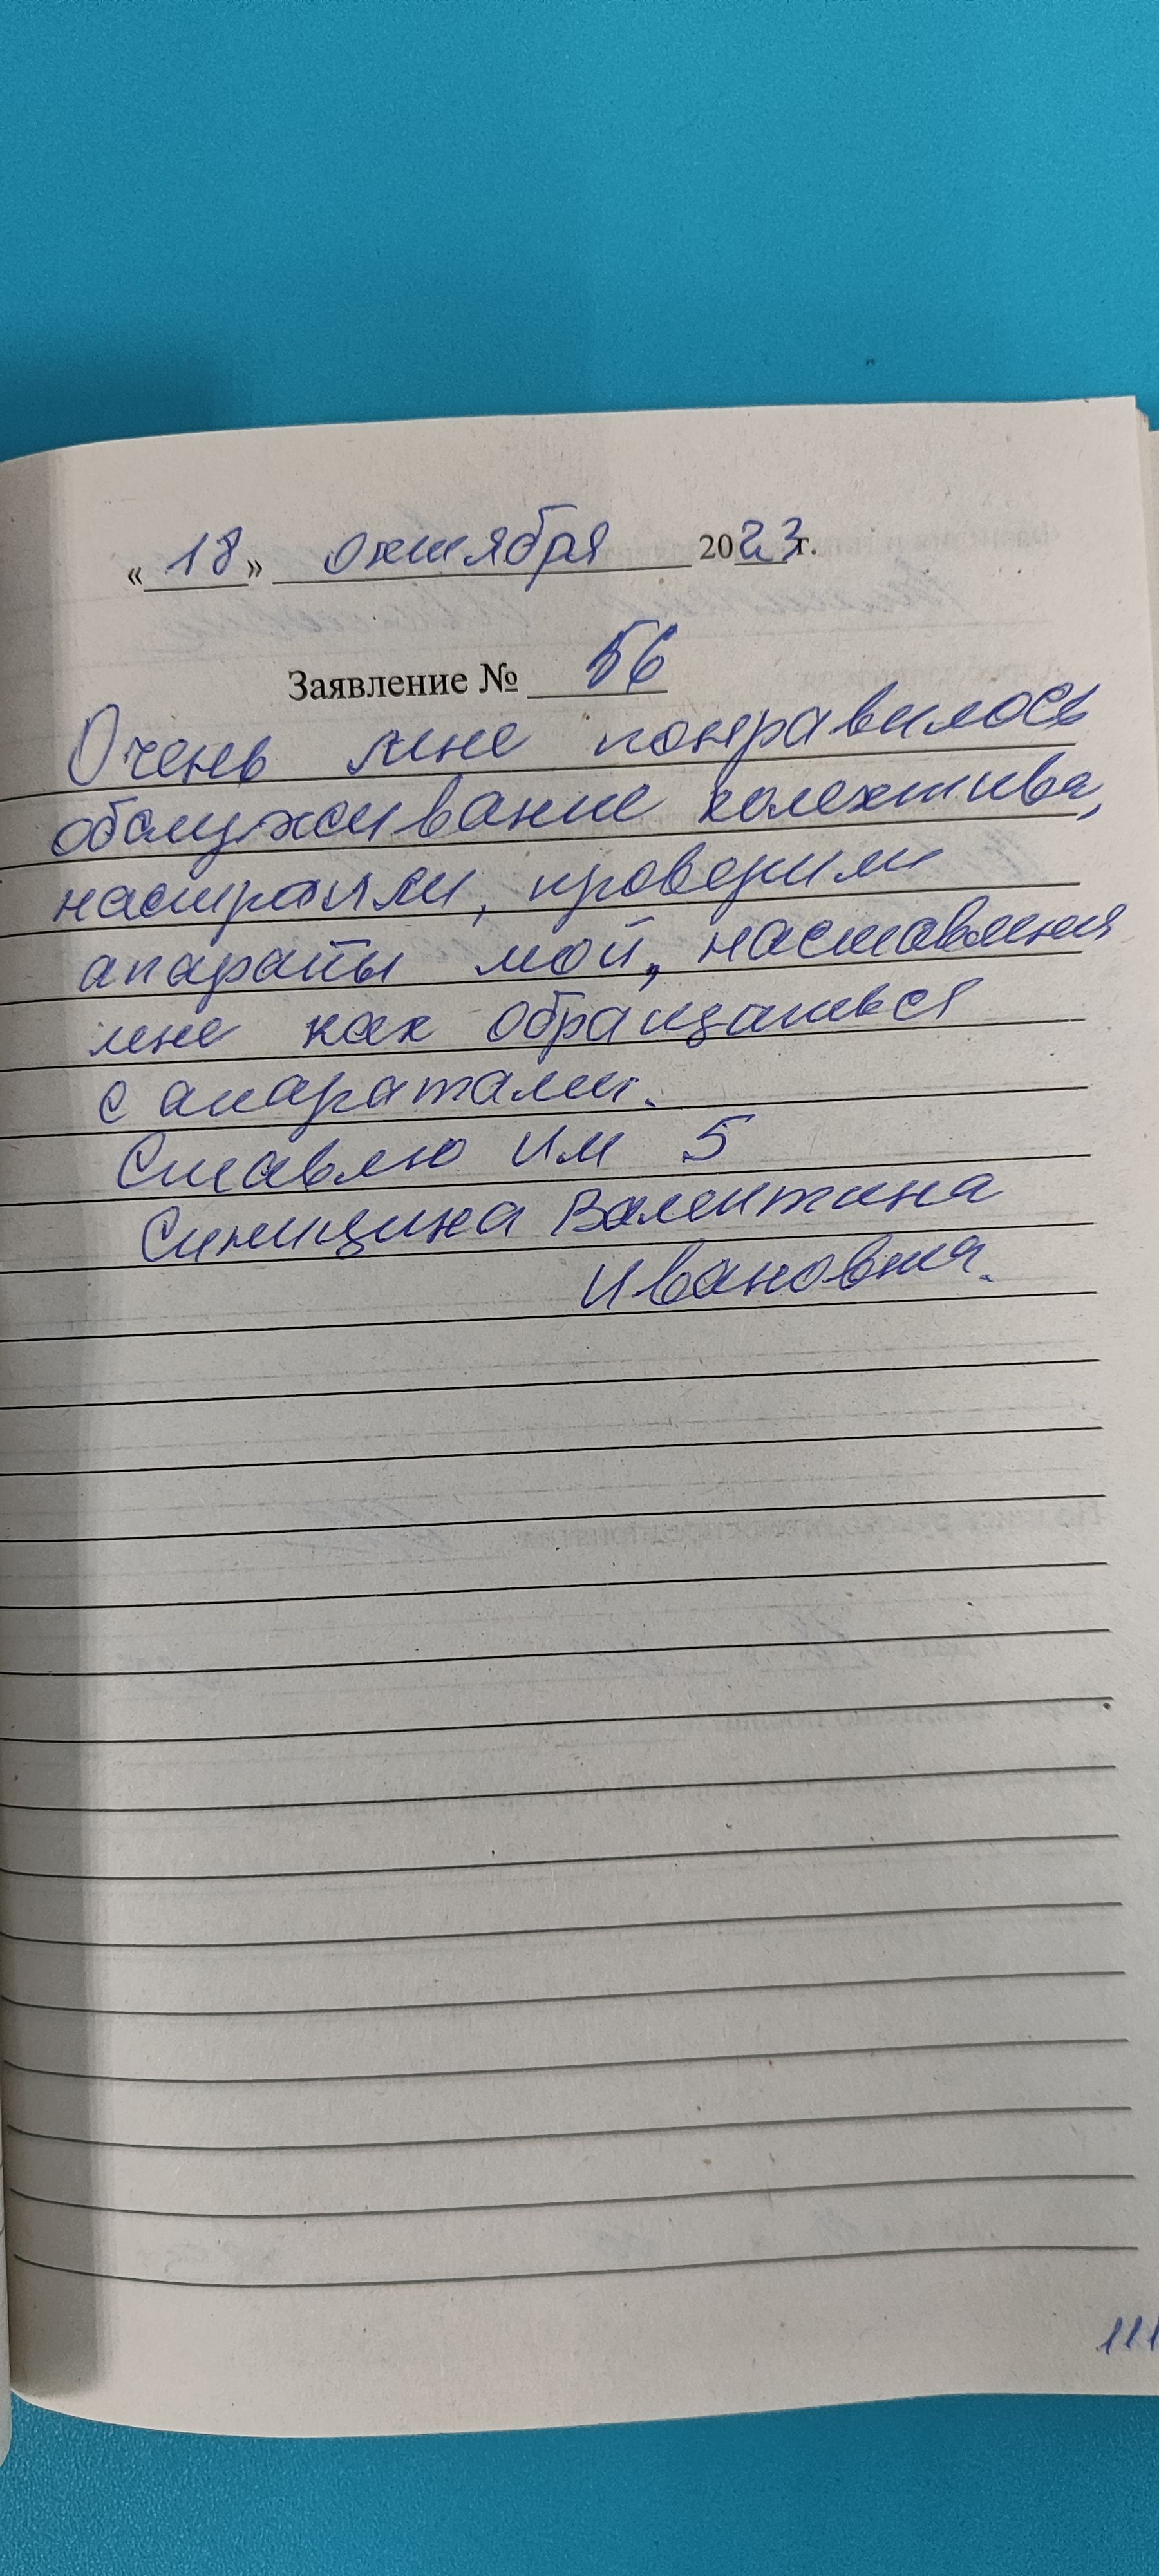 «18» октября 2023г.
Заявление № 56
Очень мне понравилось
обслуживание колектива,
настроили, проверили
апараты мой, наставления
мне как обращаться
с апаратами.
Ставлю им 5
Синицина Валентина
Ивановна.
111